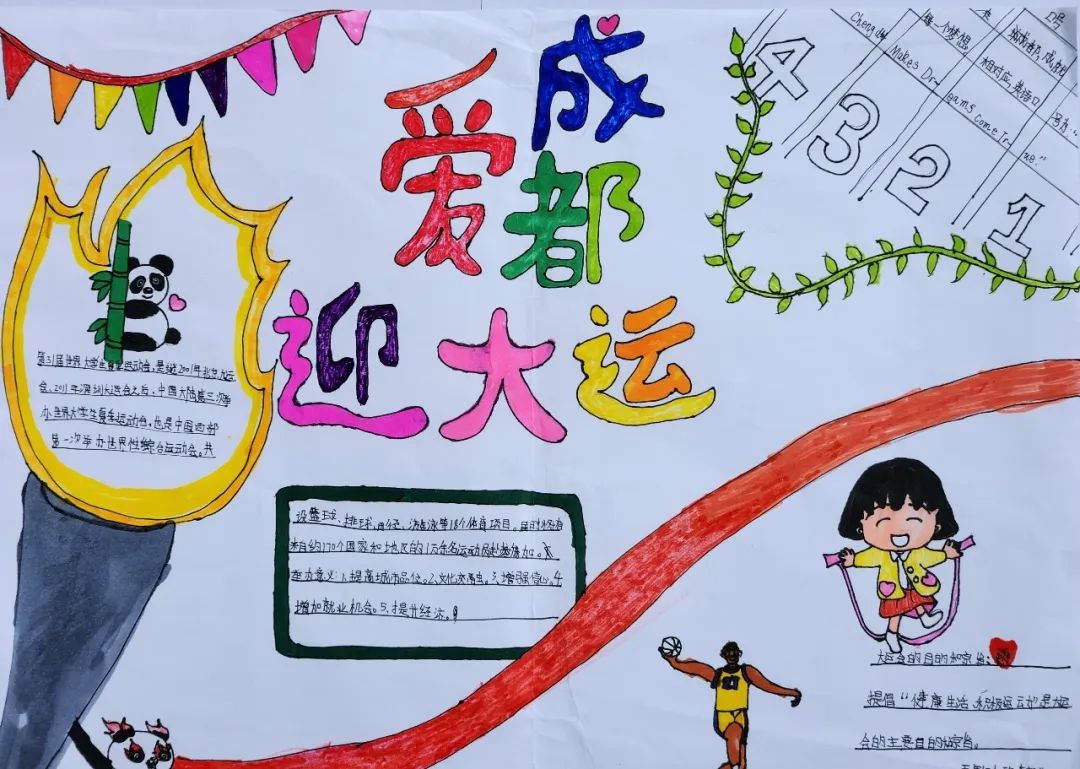 爱成都
迎大运
口号
每一个梦想
Chengdu
Makes Dreams Come True."
相对应,英语口
号为:"
4
3
2
1
第31届世界大学生夏季运动会,是继2001年北京大运
会、2011年深圳大运会之后,中国大陆第三次举
办世界大学生夏季运动会,也是中国西部
第一次举办世界性综合运动会。共
设篮球、排球、田径、游泳等18个体育项目。届时将有
来自约170个国家和地区的1万余名运动员赴蓉参加。
举办意义:1、提高城市品位。2、文化交流。3、增强信心。4、
增加就业机会。5、提升经济。
大运会的目的和宗旨:
提倡"健康生活 积极运动"是大运
会的主要目的和宗旨。